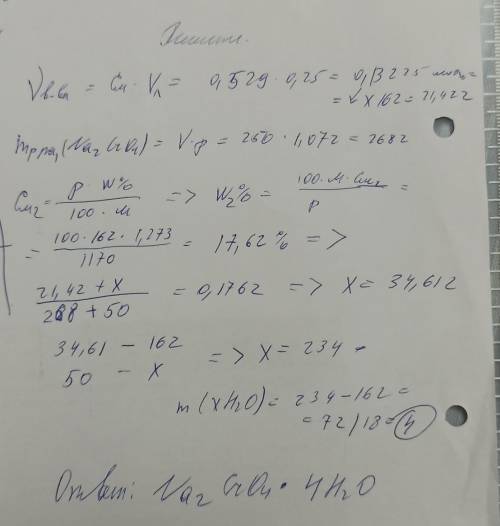 Решение.
νв-ва = Cм · Vл = 0,529 · 0,25 = 0,13225 моль =
= ν × 162 = 21,422
mр-ра (Na2CrO4) = V · ρ = 250 · 1,072 = 268г
Cм2 = ρ · W% / 100 · M => W2% = 100 · M · Cм2 / ρ =
= 100 · 162 · 1,273 / 1170 = 17,62% =>
21,42 + x / 268 + 50 = 0,1762 => x = 34,61г
34,61 – 162
50 – x => x = 234
m(xH2O) = 234 – 162 =
= 72 / 18 = 4
Ответ: Na2CrO4 • 4H2O